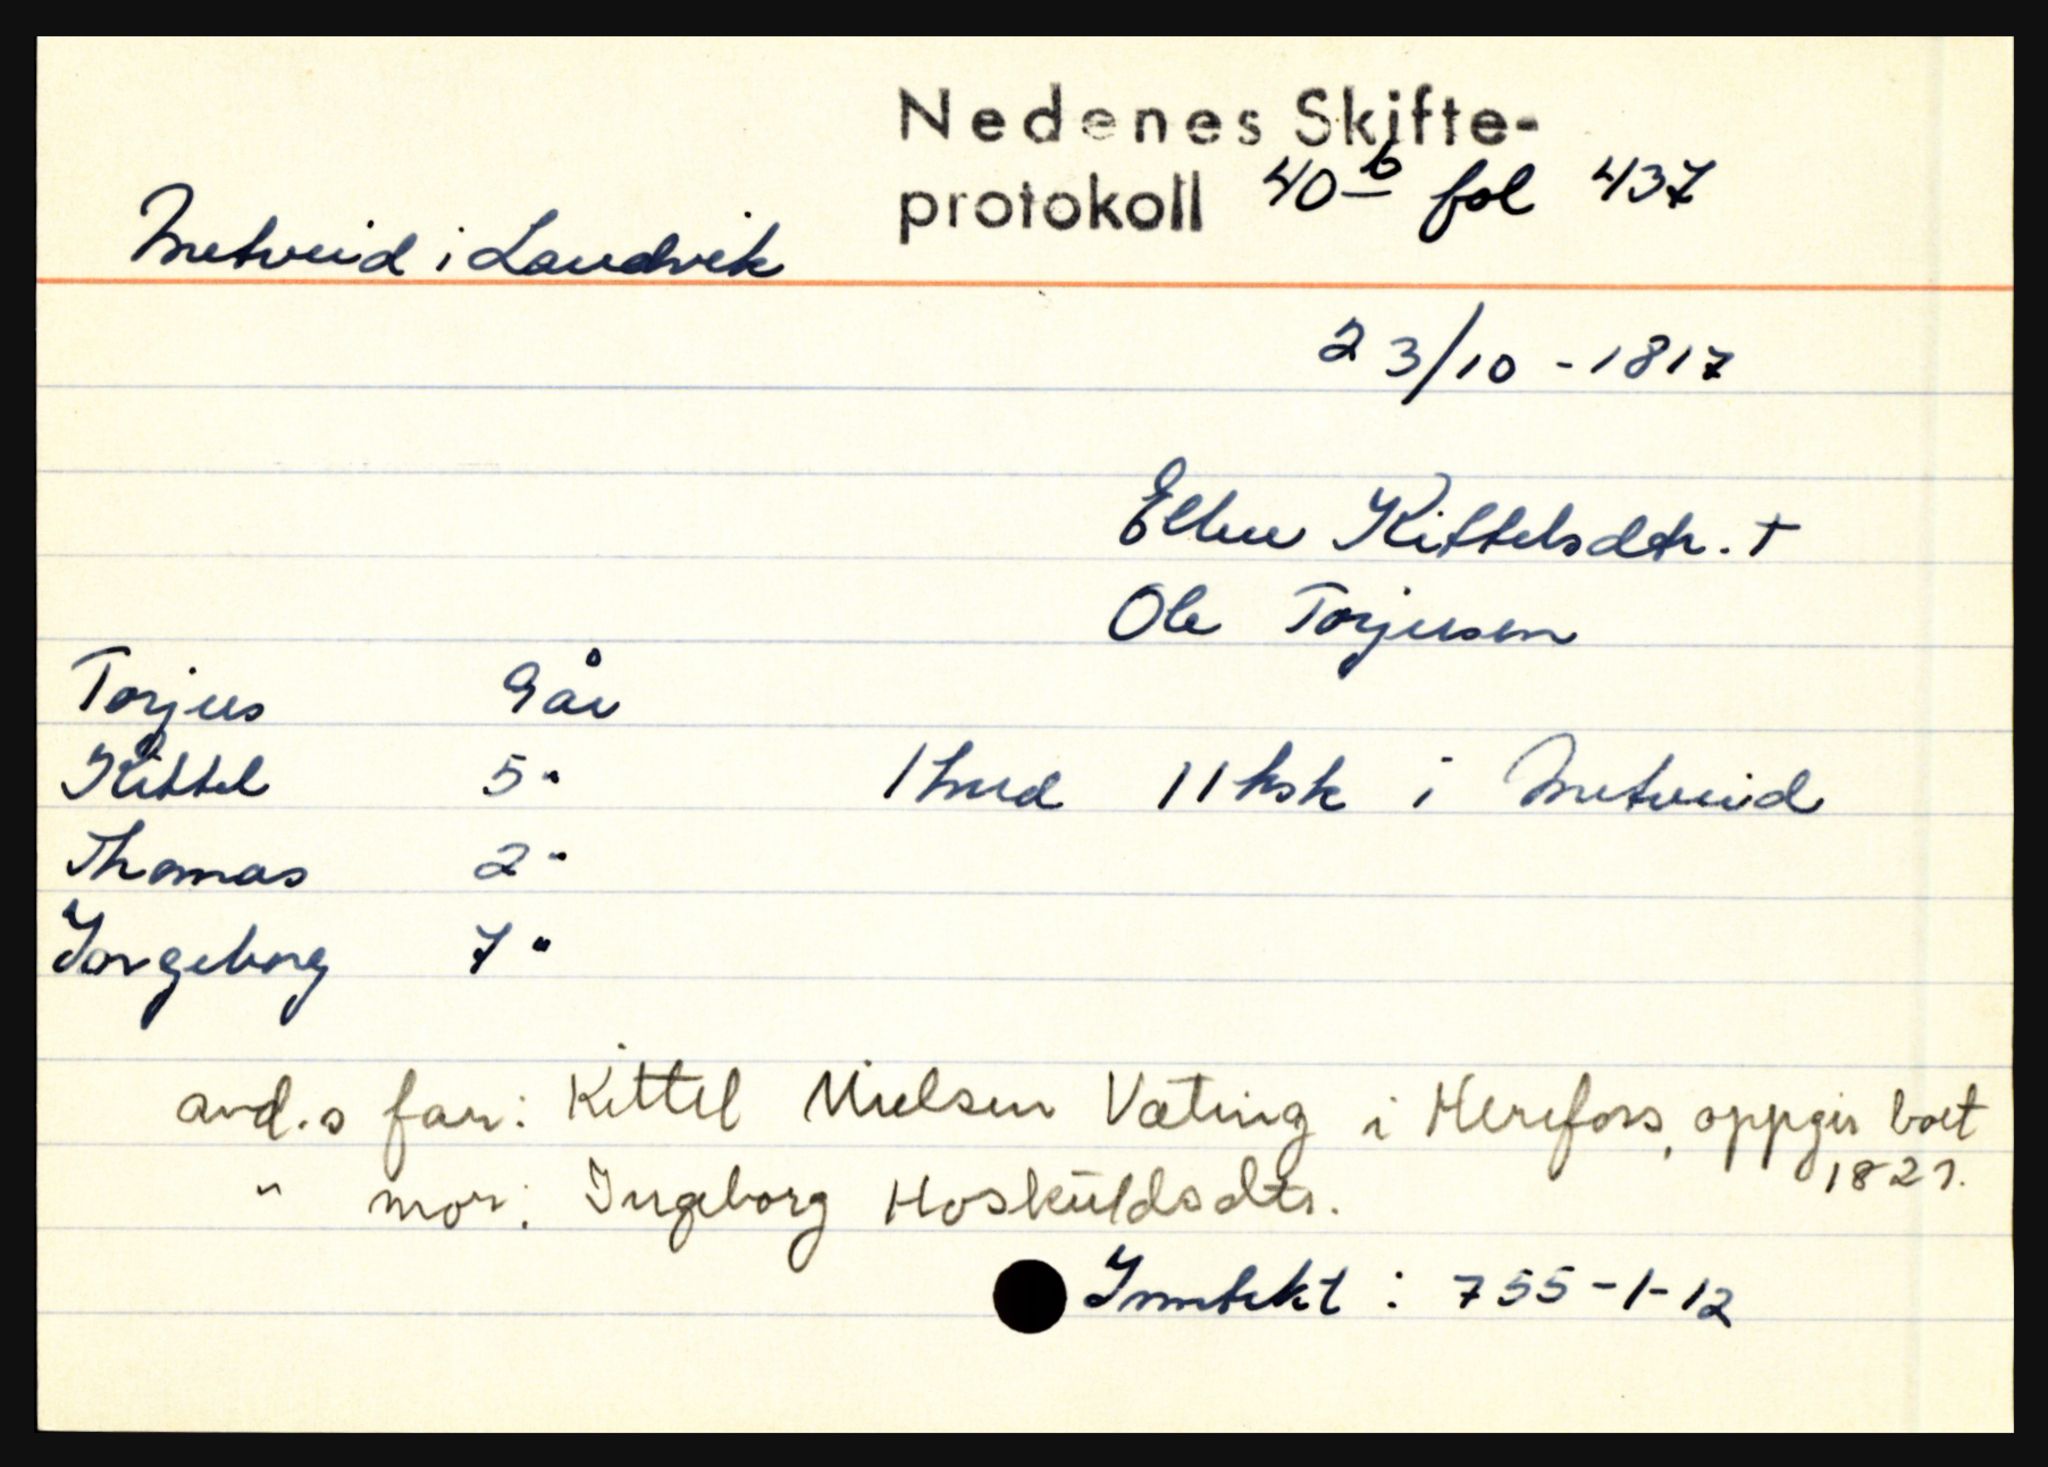 Nedenes Skifte-
protokoll 40 b fol 437
Inntveid i Landvik
23/10 - 1817
Ellen Kittelsdtr. †
Ole Torjusen
Torjus 9 år
Kittel 5 "
1 hud 11 ksk i Inntveid
Thomas 2 "
Ingeborg 7 "
avd.s far: Kittel Nielsen Væting i Herefoss, oppgir boet
1821.
" mor: Ingeborg Hoskuldsdtr.
Inntekt : 755-1-12